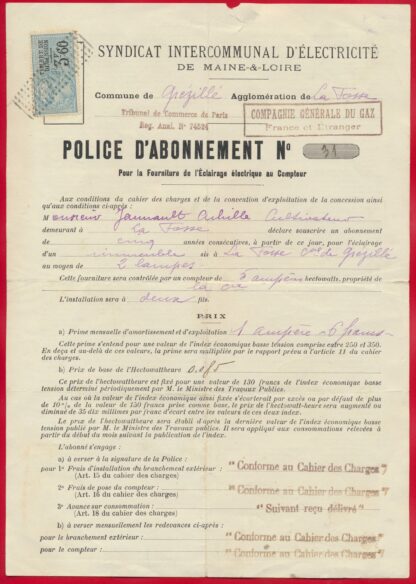 SYNDICAT INTERCOMMUNAL D'ÉLECTRICITÉ
DE MAINE-&-LOIRE
3F60
Commune de Grézillé Agglomération de La Fosse
Tribunal de Commerce de Paris
Reg. Anal. N° 74524
COMPAGNIE GÉNÉRALE DU GAZ
France et Etranger
POLICE D'ABONNEMENT N° 31
Pour la Fourniture de l'Éclairage électrique au Compteur
Aux conditions du cahier des charges et de la convention d'exploitation de la concession ainsi
qu'aux conditions ci-après :
Monsieur Achille Cultivateur
demeurant à La Fosse déclare souscrire un abonnement
de cinq années consécutives, à partir de ce jour, pour l'éclairage
d'un immeuble sis à La Fosse Cne de Grézillé
au moyen de 2 lampes
Cette fourniture sera contrôlée par un compteur de 5 ampères hectowatts, propriété de
la Cie
L'installation sera à deux fils.
PRIX
a) Prime mensuelle d'amortissement et d'exploitation 1 ampère - 6 francs
Cette prime s'entend pour une valeur de l'index économique basse tension comprise entre 250 et 350.
En deçà et au-delà de ces valeurs, la prime sera multipliée par le rapport prévu à l'article 11 du cahier
des charges.
b) Prix de base de l'Hectowattheure
Ce prix de l'hectowattheure est fixé pour une valeur de 130 francs de l'index économique basse
tension déterminé périodiquement par M. le Ministre des Travaux Publics.
Au cas où la valeur de l'index économique ainsi fixée s'écarterait par excès ou par défaut de plus
de 10 % de la valeur de 130 francs prise comme base, le prix de l'hectowattheure sera augmenté ou
diminué de 35 millimes par franc d'écart entre les valeurs de ces deux index.
Le prix de l'hectowattheure sera établi d'après la dernière valeur de l'index économique basse
tension publié par M. le Ministre des Travaux Publics. Il sera appliqué aux consommations relevées à
partir du début du mois suivant la publication de l'index.
L'abonné s'engage :
a) à verser à la signature de la Police :
pour 1° Frais d'installation du branchement extérieur : "Conforme au Cahier des Charges"
(Art. 15 du cahier des charges)
2° Frais de pose du compteur : "Conforme au Cahier des Charges"
(Art. 16 du cahier des charges)
3° Avances sur consommation : "Suivant reçu délivré"
(Art. 18 du cahier des charges)
b) à verser mensuellement les redevances ci-après :
pour le branchement extérieur : "Conforme au Cahier des Charges"
pour le compteur : "Conforme au Cahier des Charges"